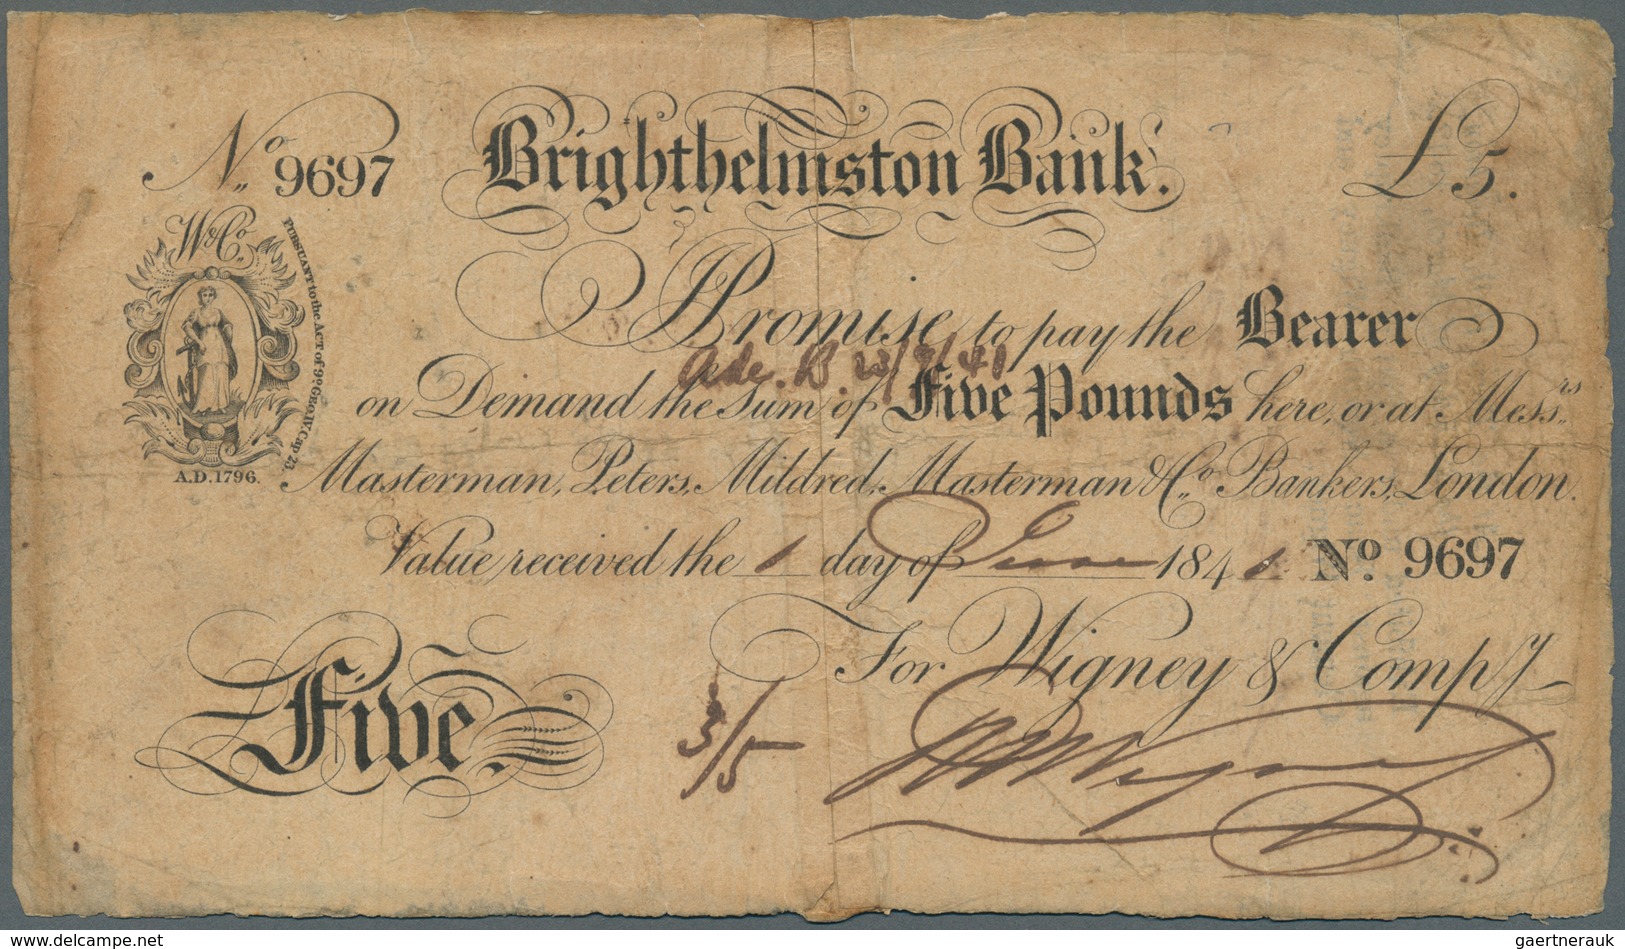 No 9697 Brighthelmston Bank. £5.
W & Co.
PURSUANT to the ACT of 9o GEO. IV. Cap 23.
A.D. 1796.
I Promise to pay the Bearer
on Demand the Sum of Five Pounds here, or at Messrs.
Masterman, Peters, Mildred, Masterman & Co. Bankers, London.
Value received the 1 day of June 1841 No. 9697
For Wigney & Compy
Five.
3/5
delcampe.net
gaertnerauk